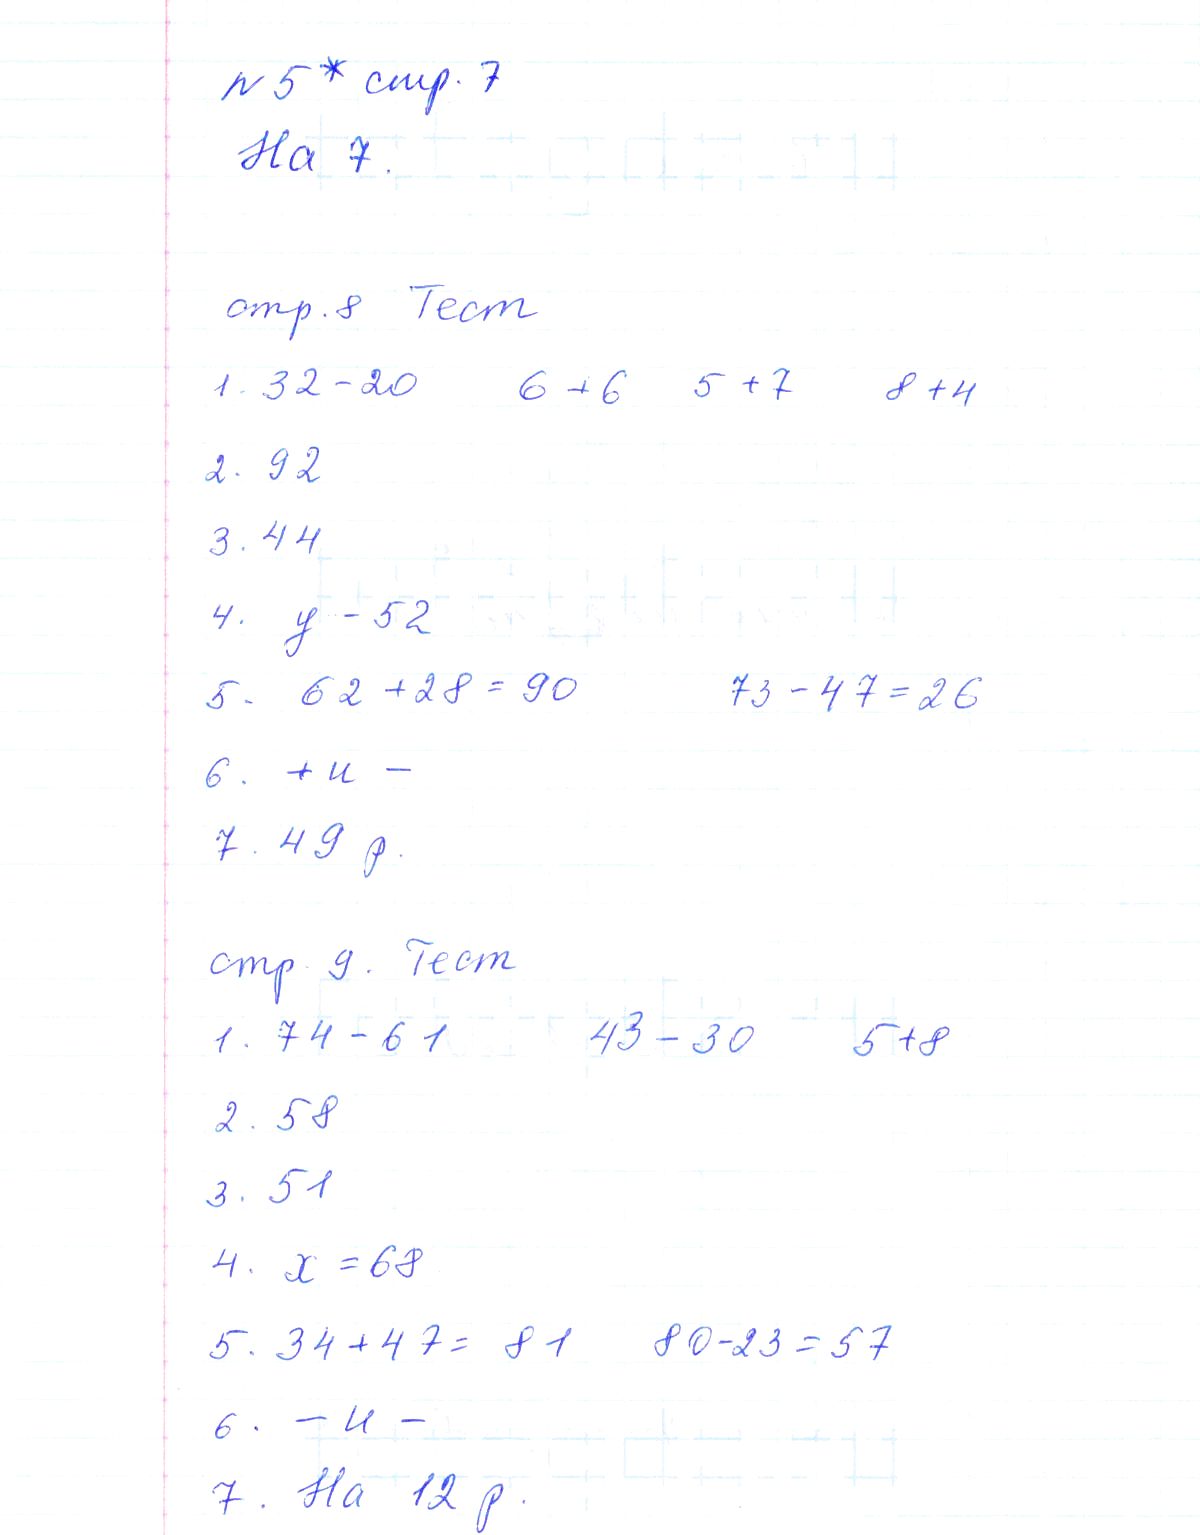 № 5* стр. 7
На 7.
стр. 8 Тест
1. 32 - 20 6 + 6 5 + 7 8 + 4
2. 92
3. 44
4. у - 52
5. 62 + 28 = 90 73 - 47 = 26
6. + и -
7. 49 р.
стр. 9. Тест
1. 74 - 61 43 - 30 5 + 8
2. 58
3. 51
4. х = 68
5. 34 + 47 = 81 80 - 23 = 57
6. - и -
7. На 12 р.